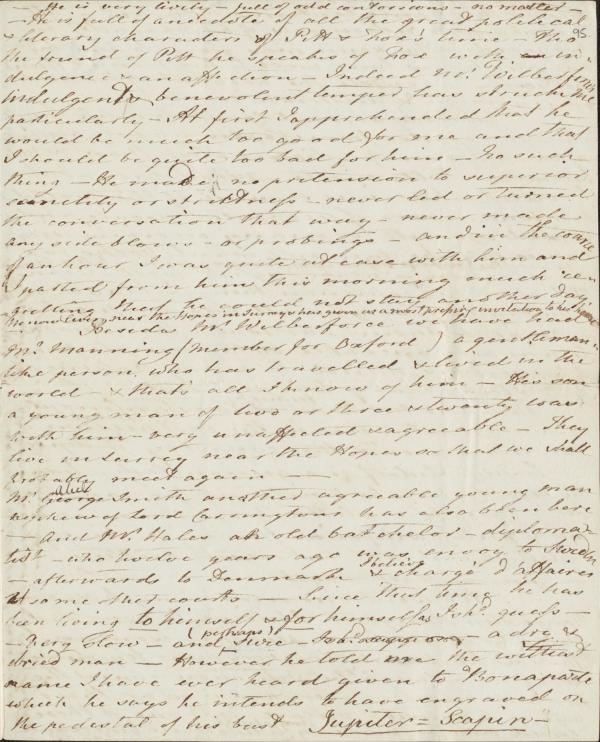 – He is very lively – full of odd contorsions – no matter –
– He is full of anecdote of all the great political
& literary characters of Pitt & Fox's time – Tho
95
the friend of Pitt he speaks of Fox with in-
dulgence & an affection – Indeed Mr Wilberforce's
indulgent & benevolent temper has struck me
particularly – At first I apprehended that he
would be much too good for me and that
I should be quite too bad for him – No such
thing – He made no pretension to superior
sanctity or strictness – never led or turned
the conversation that way – never made
any side blows – or probings – and in the course
of an hour I was quite at ease with him and
I parted from him this morning much re-
gretting that he could not stay another day
He now living near the Hopes in Surrey & has given us a most pressing invitation to his house
Besides Mr Wilberforce we have had
Mr Manning (member for Oxford ) a gentleman-
like person, who has travelled & lived in the
world – & that's all I know of him – His son
a young man of two or three & twenty was
with him – very unaffected & agreeable – They
live in Surrey near the Hopes so that we shall
probably meet again –
Mr Abel
George Smith another agreeable young man
nephew of Lord Carringtons has also been here
– And Mr Hales an old batchelor – diploma-
tist – who twelve years ago was envoy to Sweden
– afterwards to Denmark & I believe chargé d'affaires
at some other courts – Since that time he has
been living to himself & for himself as I shd guess –
– Very slow – and (perhaps) sure – a dry &
dried man – However he told me the wittiest
name I have ever heard given to Bonaparte
which he says he intends to have engraved on
the pedestal of his bust Jupiter = Scapin –